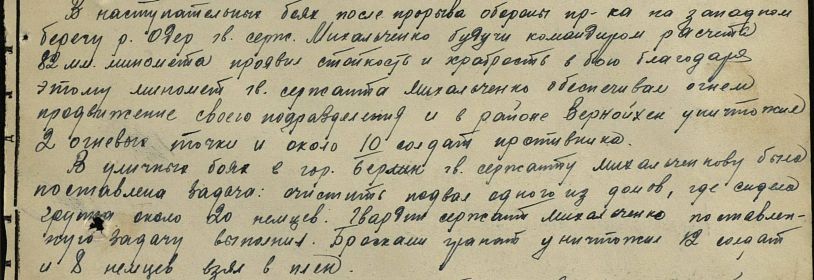 В наступательных боях после прорыва обороны пр-ка на западном
берегу р. Одер гв. серж. Михальченко будучи командиром расчета
82 мм. миномета проявил стойкость и храбрость в бою благодаря
этому миномет гв. сержанта Михальченко обеспечивал огнем
продвижение своего подразделения и в районе уничтожил
2 огневых точки и около 10 солдат противника.
В уличных боях в гор. Берлин гв. сержанту Михальченкову была
поставлена задача: очистить подвал одного из домов, где сидела
группа около 20 немцев. Гвардии сержант Михальченко поставлен-
ную задачу выполнил. Бросками гранат уничтожил 12 солдат
и 8 немцев взял в плен.